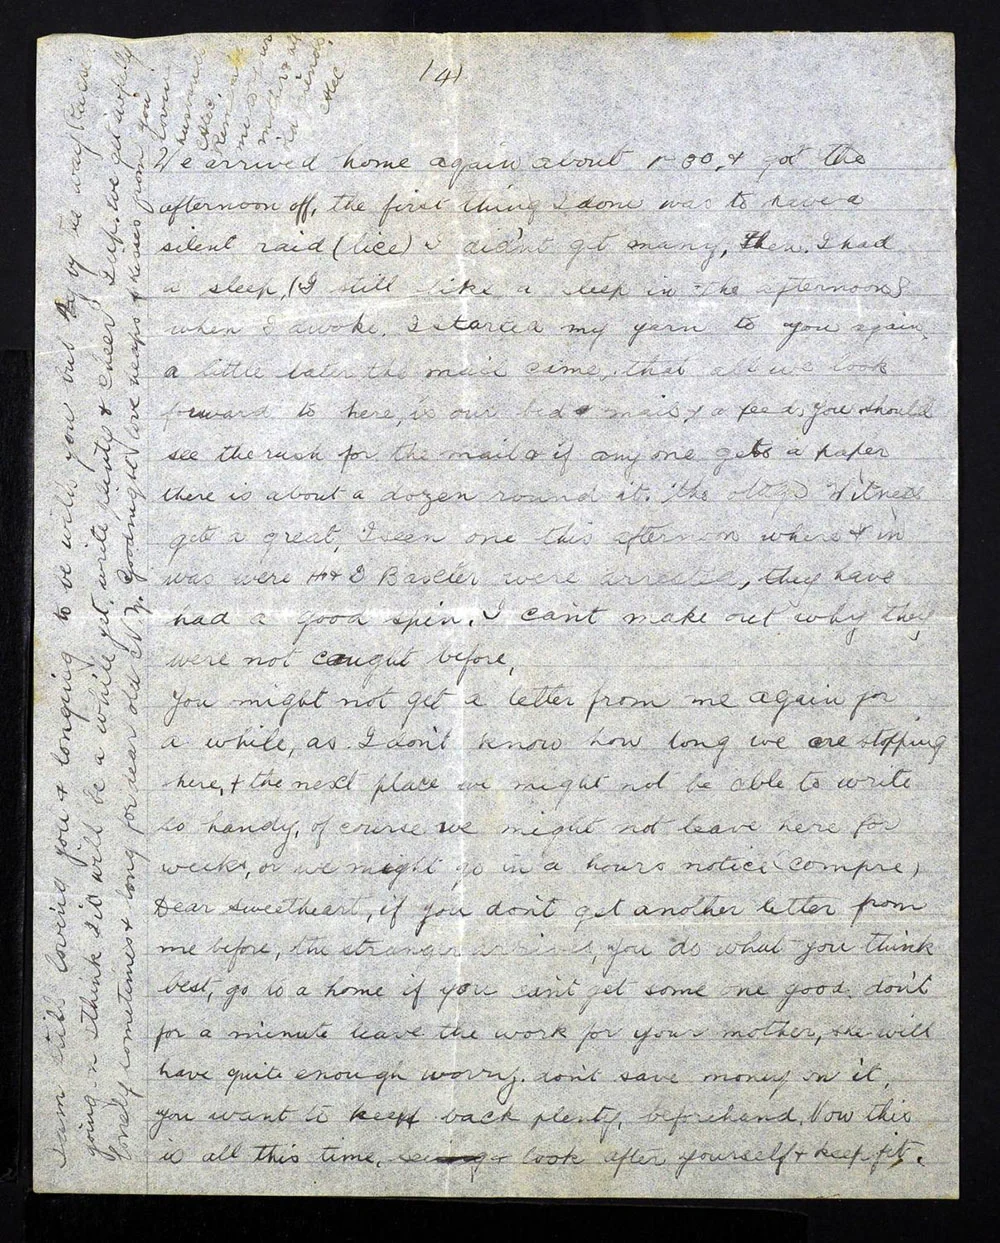 (4)
We arrived home again about 1-30, & got the
afternoon off, the first thing I done was to have a
silent raid (lice) I didn't get many, then I had
a sleep, (I still like a sleep in the afternoon)
when I awoke. I started my yarn to you again,
a little later the mail came, that all we look
forward to here, is our bed & mail, & a feed, you should
see the rush for the mail & if any one gets a paper
there is about a dozen round it. the otago Witness
gets a great, I seen one this afternoon where & in
was were H & D Baxter were arrested, they have
had a good spin. I can't make out why they
were not caught before,
You might not get a letter from me again for
a while, as I don't know how long we are stopping
here, & the next place we might not be able to write
so handy, of course we might not leave here for
weeks, or we might go in a hours notice (compre)
Dear sweetheart, if you don't get another letter from
me before, the stranger arrives, you do what you think
best, go to a home if you can't get some one good. don't
for a minute leave the work for your mother, she will
have quite enough worry. don't save money on it,
you want to keep back plenty, beforehand. Now this
is all this time, & look after yourself & keep fit,
I am still loving you & longing to be with you but by the way
going on I think it will be a while yet, write quite & cheer I up. we get awfully
lonely sometimes & long for dear old N.Z. Goodnight love heaps & kisses from you
loving
husband
Alec.
Remember
me to your
mother & all
friends
Alec